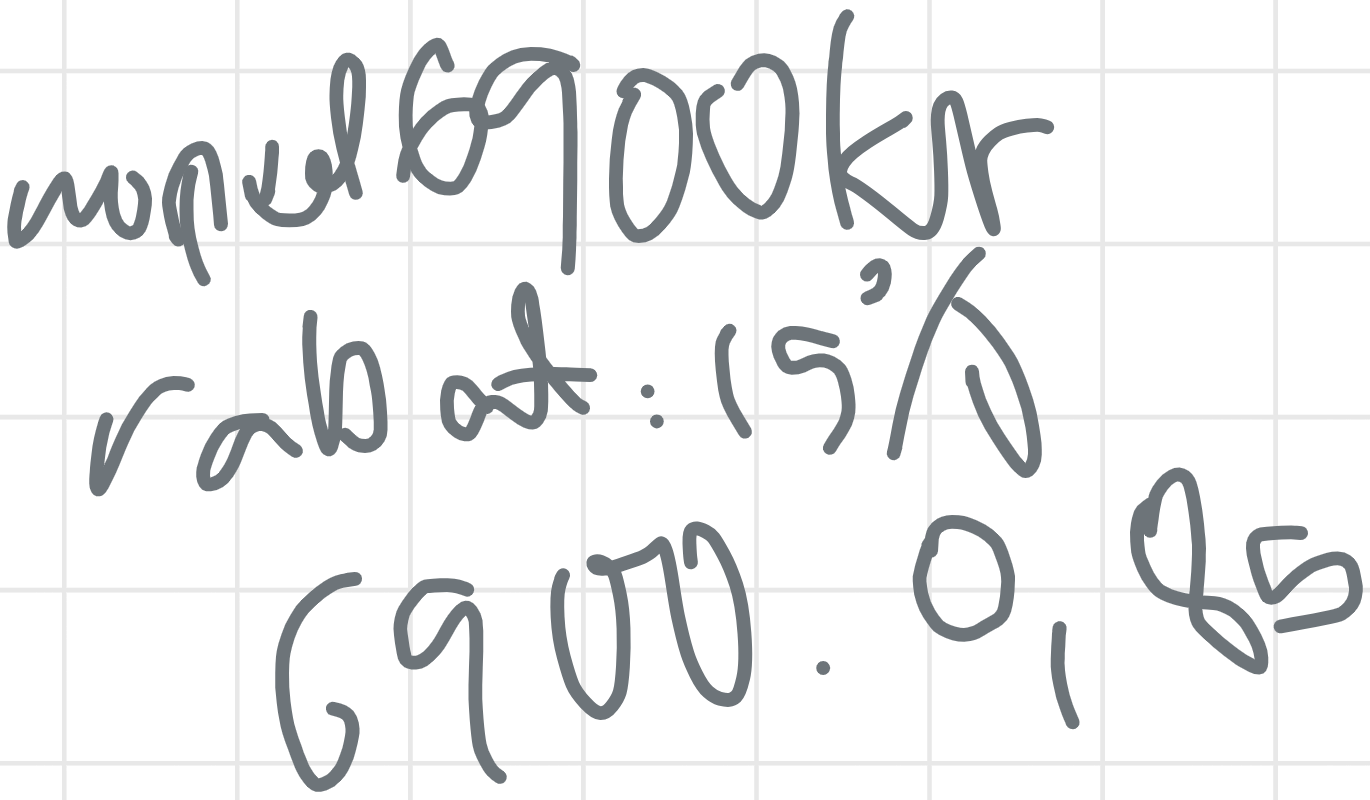 moped 6900kr
rabat: 15%
6900 . 0,85